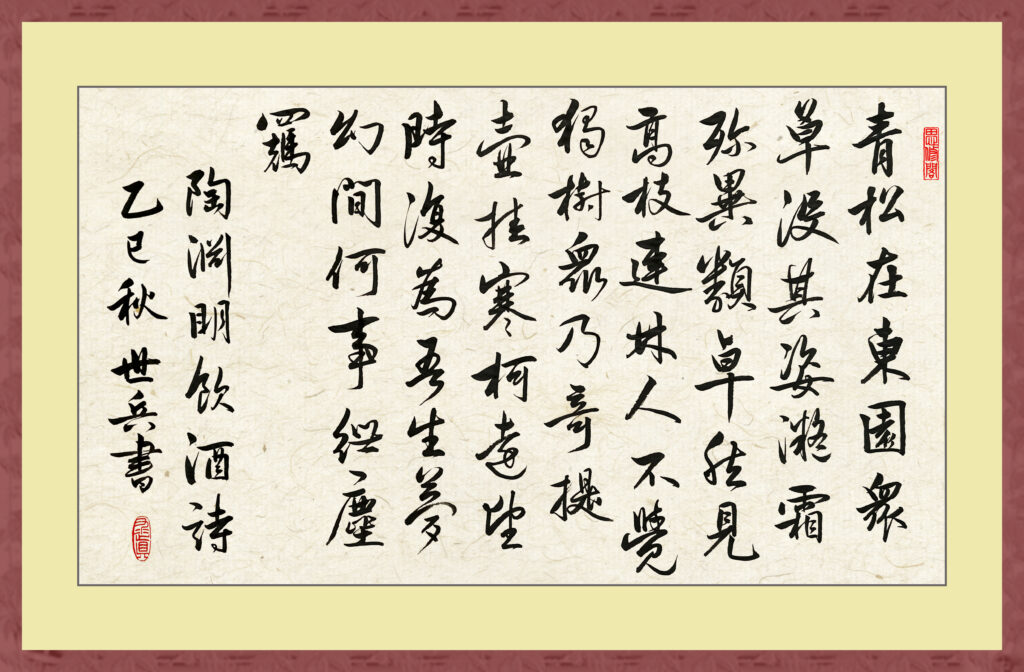 青松在東園眾
草沒其姿凝霜
殄異類卓然見
高枝連林人不覺
獨樹眾乃奇提
壺挂寒柯遠望
時復為吾生夢
幻間何事紲塵
羈
陶淵明飲酒詩
乙巳秋 世兵書